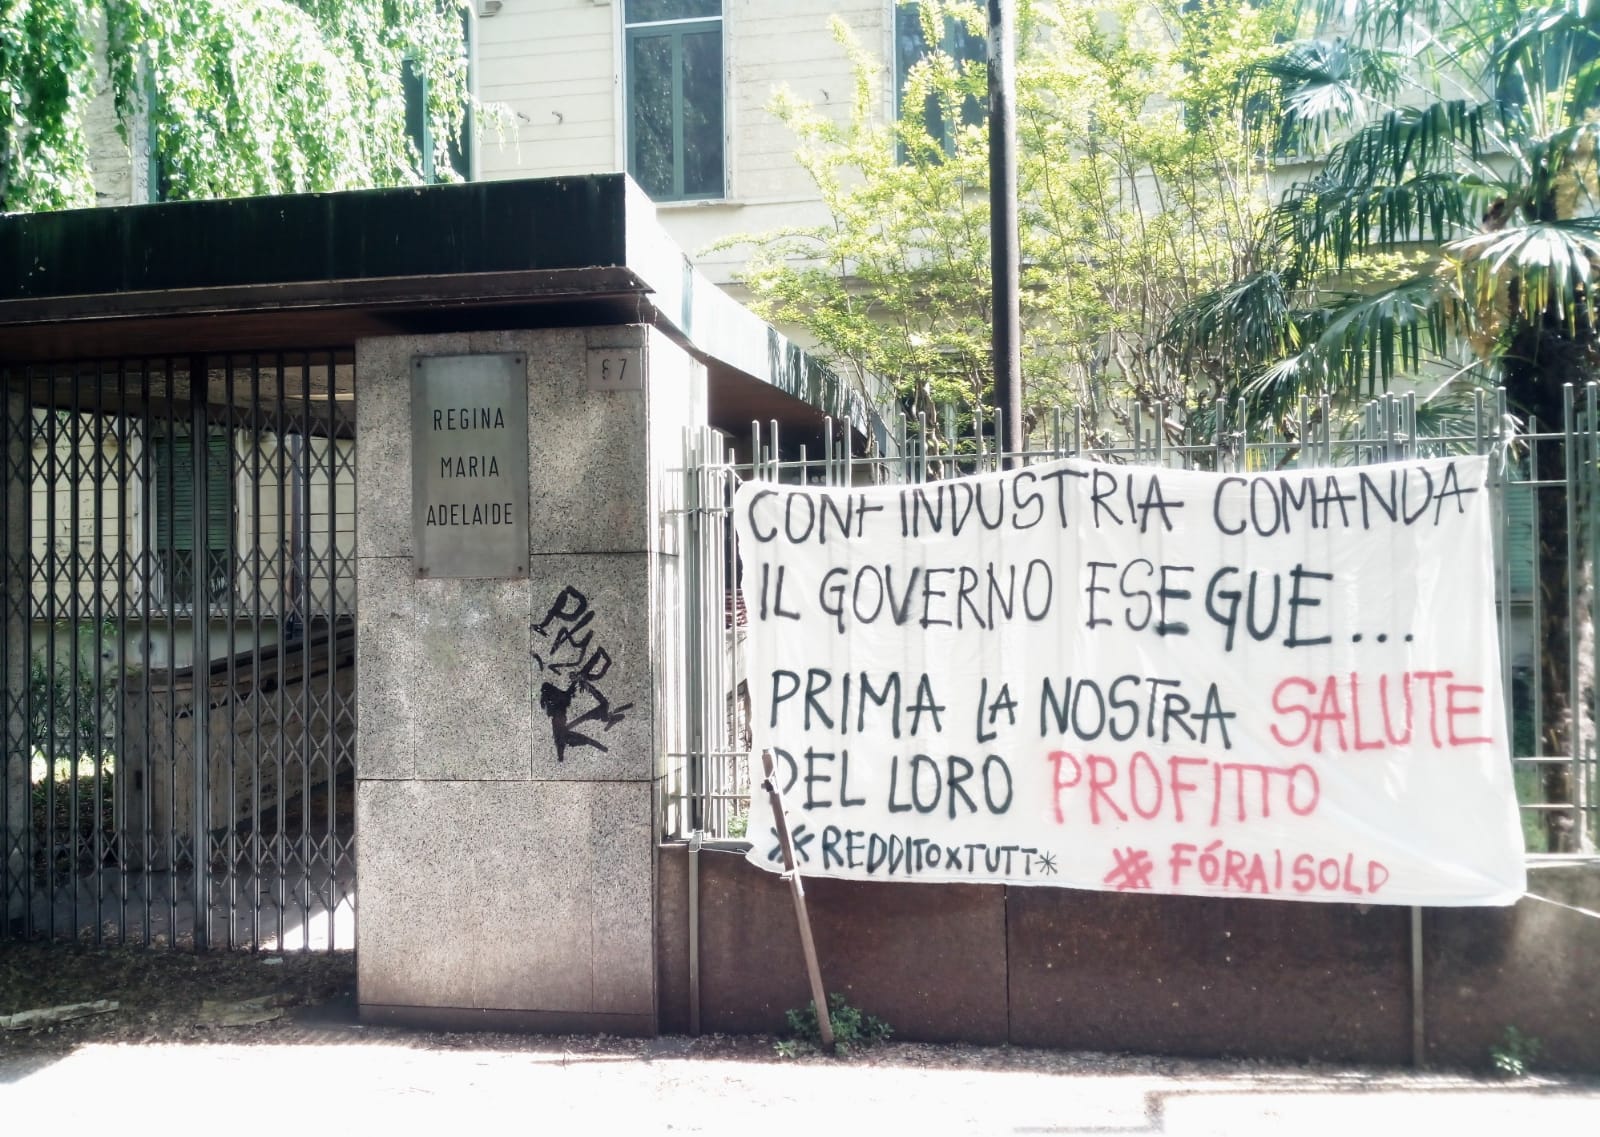 REGINA
MARIA
ADELAIDE
87
CONFINDUSTRIA COMANDA
IL GOVERNO ESEGUE...
PRIMA LA NOSTRA SALUTE
DEL LORO PROFITTO
#REDDITOXTUTT*
# FÓRAISOLD